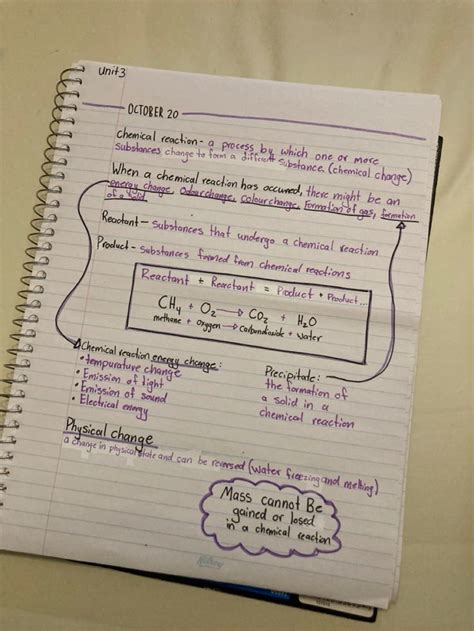 unit3
OCTOBER 20
chemical reaction - a process by which one or more
substances change to form a different substance. (chemical change)
When a chemical reaction has occured, there might be an
energy change, Odour change, Colour change, Formation of gas, formation
of a solid
Reactant - substances that undergo a chemical reaction
Product - substances formed from chemical reactions
Reactant + Reactant = Product + Product...
CH4 + O2 → CO2 + H2O
methane + oxygen → Carbondioxide + water
Chemical reaction energy change:
• temperature change
• Emission of light
• Emission of sound
• Electrical energy
Precipitate:
the formation of
a solid in a
chemical reaction
Physical change
a change in physical state and can be reversed (water freezing and melting)
Mass cannot Be
gained or losed
in a chemical reaction
Hilroy